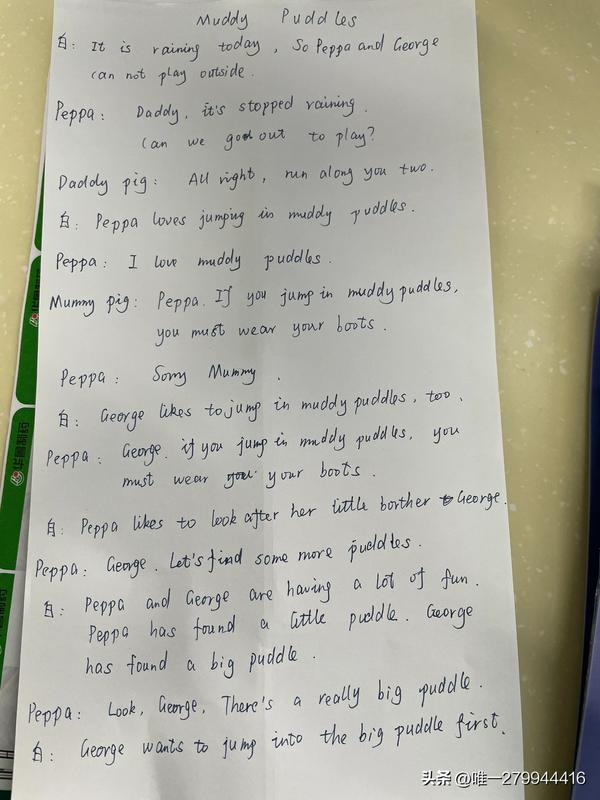 Muddy Puddles
自: It is raining today, So Peppa and George
can not play outside.
Peppa: Daddy, it's stopped raining.
Can we go out to play?
Daddy pig: All right, run along you two.
自: Peppa loves jumping in muddy puddles.
Peppa: I love muddy puddles.
Mummy pig: Peppa. If you jump in muddy puddles,
you must wear your boots.
Peppa: Sorry Mummy.
自: George likes to jump in muddy puddles, too.
Peppa: George. if you jump in muddy puddles, you
must wear your boots.
自: Peppa likes to look after her little borther George.
Peppa: George. Let's find some more puddles.
自: Peppa and George are having a lot of fun.
Peppa has found a little puddle. George
has found a big puddle.
Peppa: Look, George, There's a really big puddle.
自: George wants to jump into the big puddle first.
头条 @唯一279944416